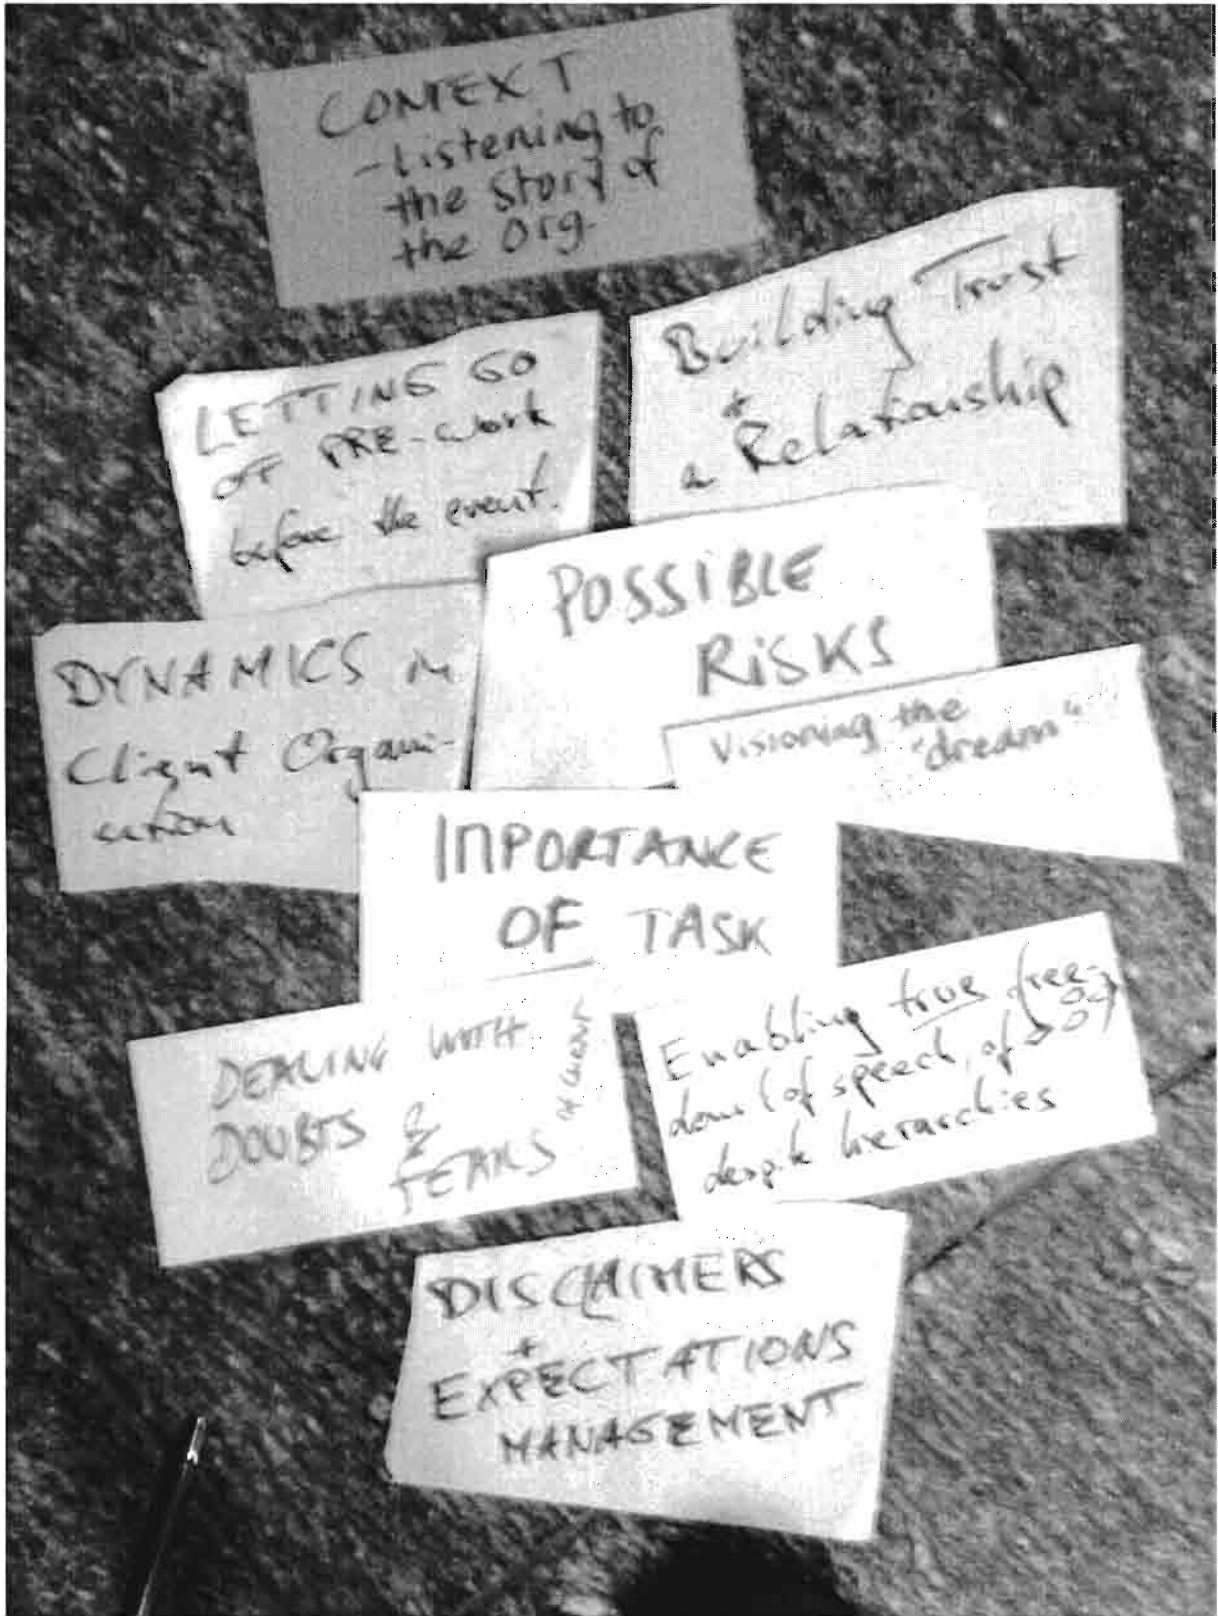 CONTEXT
- Listening to
the story of
the org.
Building Trust
+
a Relationship
LETTING GO
OFF PRE-work
before the event.
POSSIBLE
RISKS
DYNAMICS in
Client Organi-
sation
Visioning the
"dream"
IMPORTANCE
OF TASK
DEALING WITH
DOUBTS &
FEARS
of client
Enabling true free-
dom (of speech, of
despite hierarchies
DISCLAIMERS
+
EXPECTATIONS
MANAGEMENT